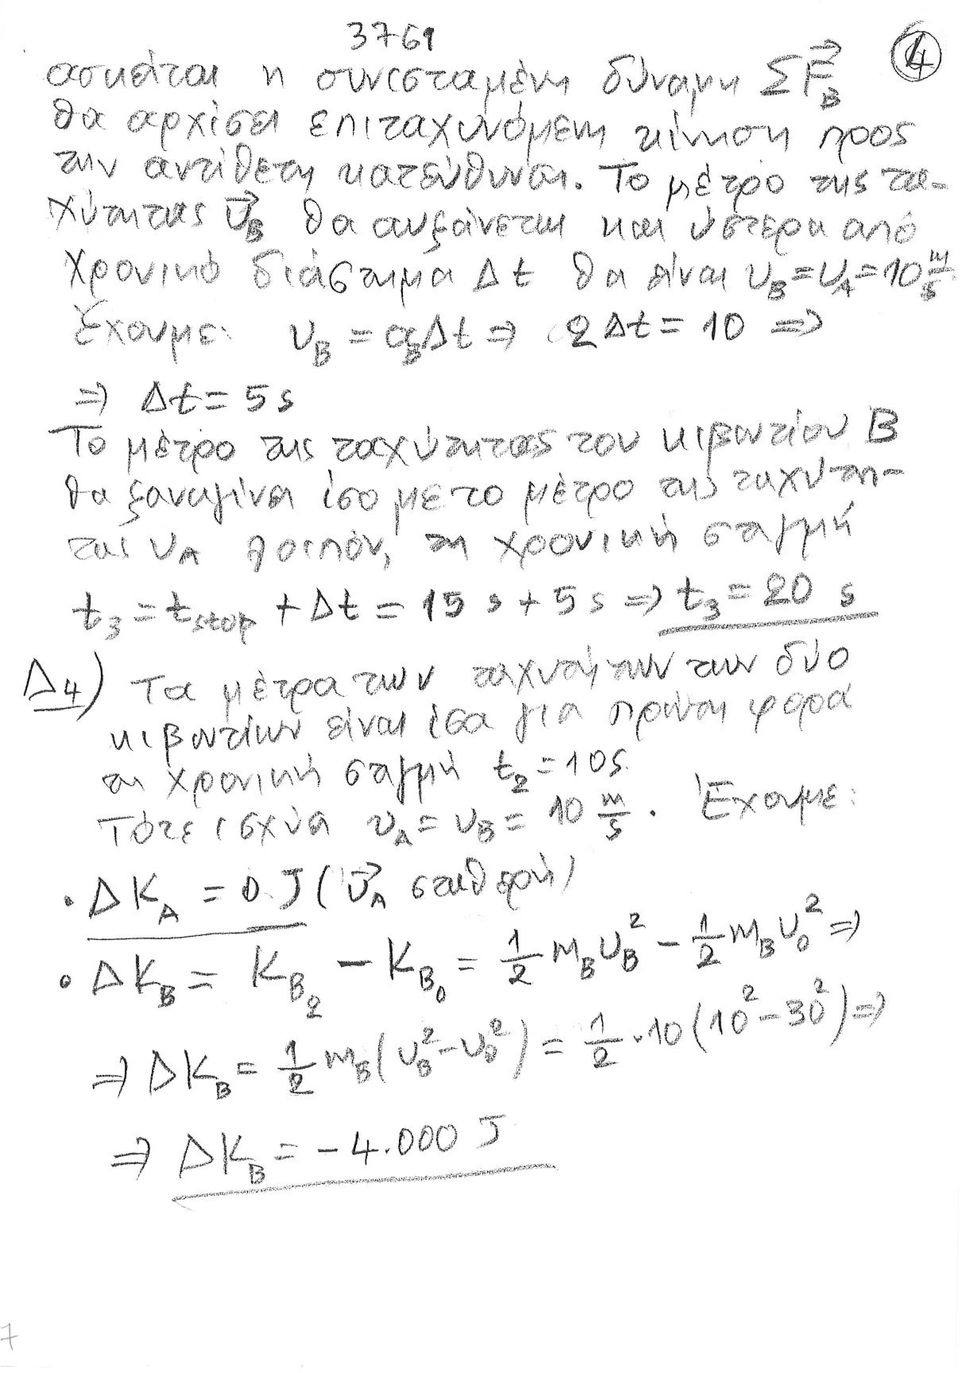 3769
4
ασκείται η συνισταμένη δύναμη ΣF⃗_B
θα αρχίσει επιταχυνόμενη κίνηση προς
την αντίθετη κατεύθυνση. Το μέτρο της τα-
χύτητας υ⃗_B θα αυξάνεται και ύστερα από
χρονικό διάστημα Δt θα είναι υ_B = υ_A = 10 m/s
Έχουμε: υ_B = α_B Δt ⇒ 2Δt = 10 ⇒
⇒ Δt = 5 s
Το μέτρο της ταχύτητας του κιβωτίου Β
θα ξαναγίνει ίσο με το μέτρο της ταχύτη-
τας υ_A λοιπόν, τη χρονική στιγμή
t_3 = t_stop + Δt = 15 s + 5 s ⇒ t_3 = 20 s
Δ4) Τα μέτρα των ταχυτήτων των δύο
κιβωτίων είναι ίσα για πρώτη φορά
τη χρονική στιγμή t_2 = 10s.
Τότε ισχύει υ_A = υ_B = 10 m/s. Έχουμε:
• ΔK_A = 0 J (υ⃗_A σταθερή)
• ΔK_B = K_B2 − K_B0 = 1/2 m_B υ_B² − 1/2 m_B υ_0² ⇒
⇒ ΔK_B = 1/2 m_B (υ_B² − υ_0²) = 1/2 · 10 (10² − 30²) ⇒
⇒ ΔK_B = −4.000 J
7